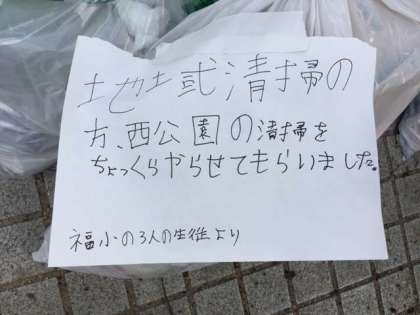 地土或清掃の
方、西公園の清掃を
ちょっくらやらせてもらいました。
福小の3人の生徒より